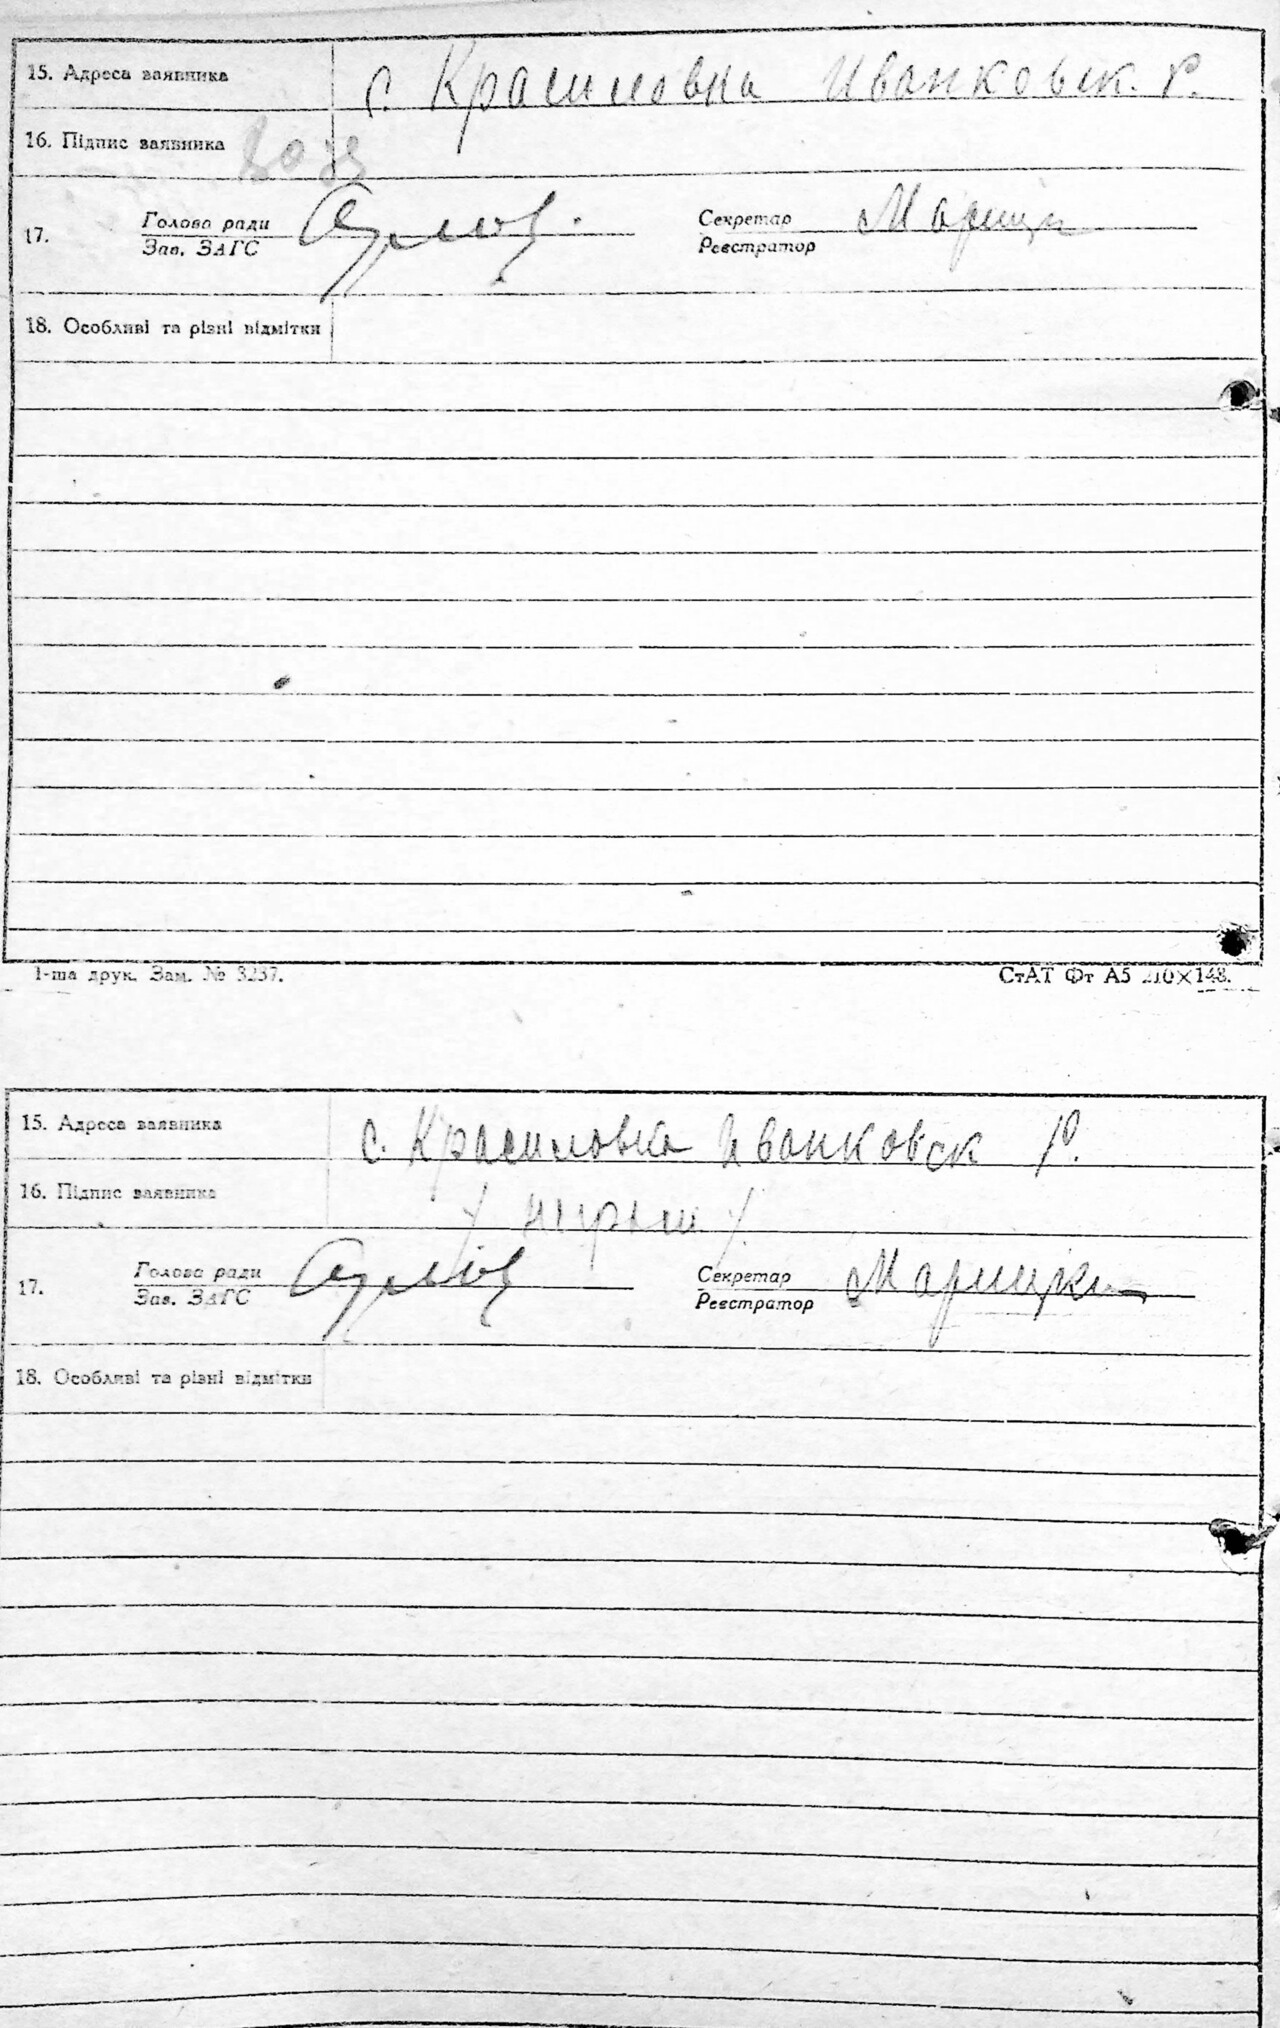 15. Адреса заявника с. Красиловка Иванковск. р.
16. Підпис заявника
17. Голова ради Секретар
Зав. ЗАГС Реєстратор
18. Особливі та різні відмітки
1-ша друк. Зам. № 3237. СтАТ Фт А5 210×148.
15. Адреса заявника с. Красиловка Иванковск р.
16. Підпис заявника
17. Голова ради Секретар
Зав. ЗАГС Реєстратор
18. Особливі та різні відмітки